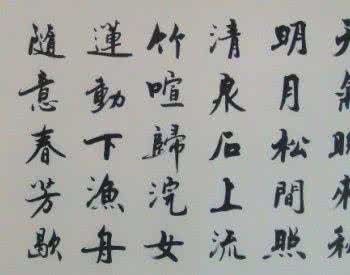 天氣晚來秋
明月松間照
清泉石上流
竹喧歸浣女
蓮動下漁舟
隨意春芳歇